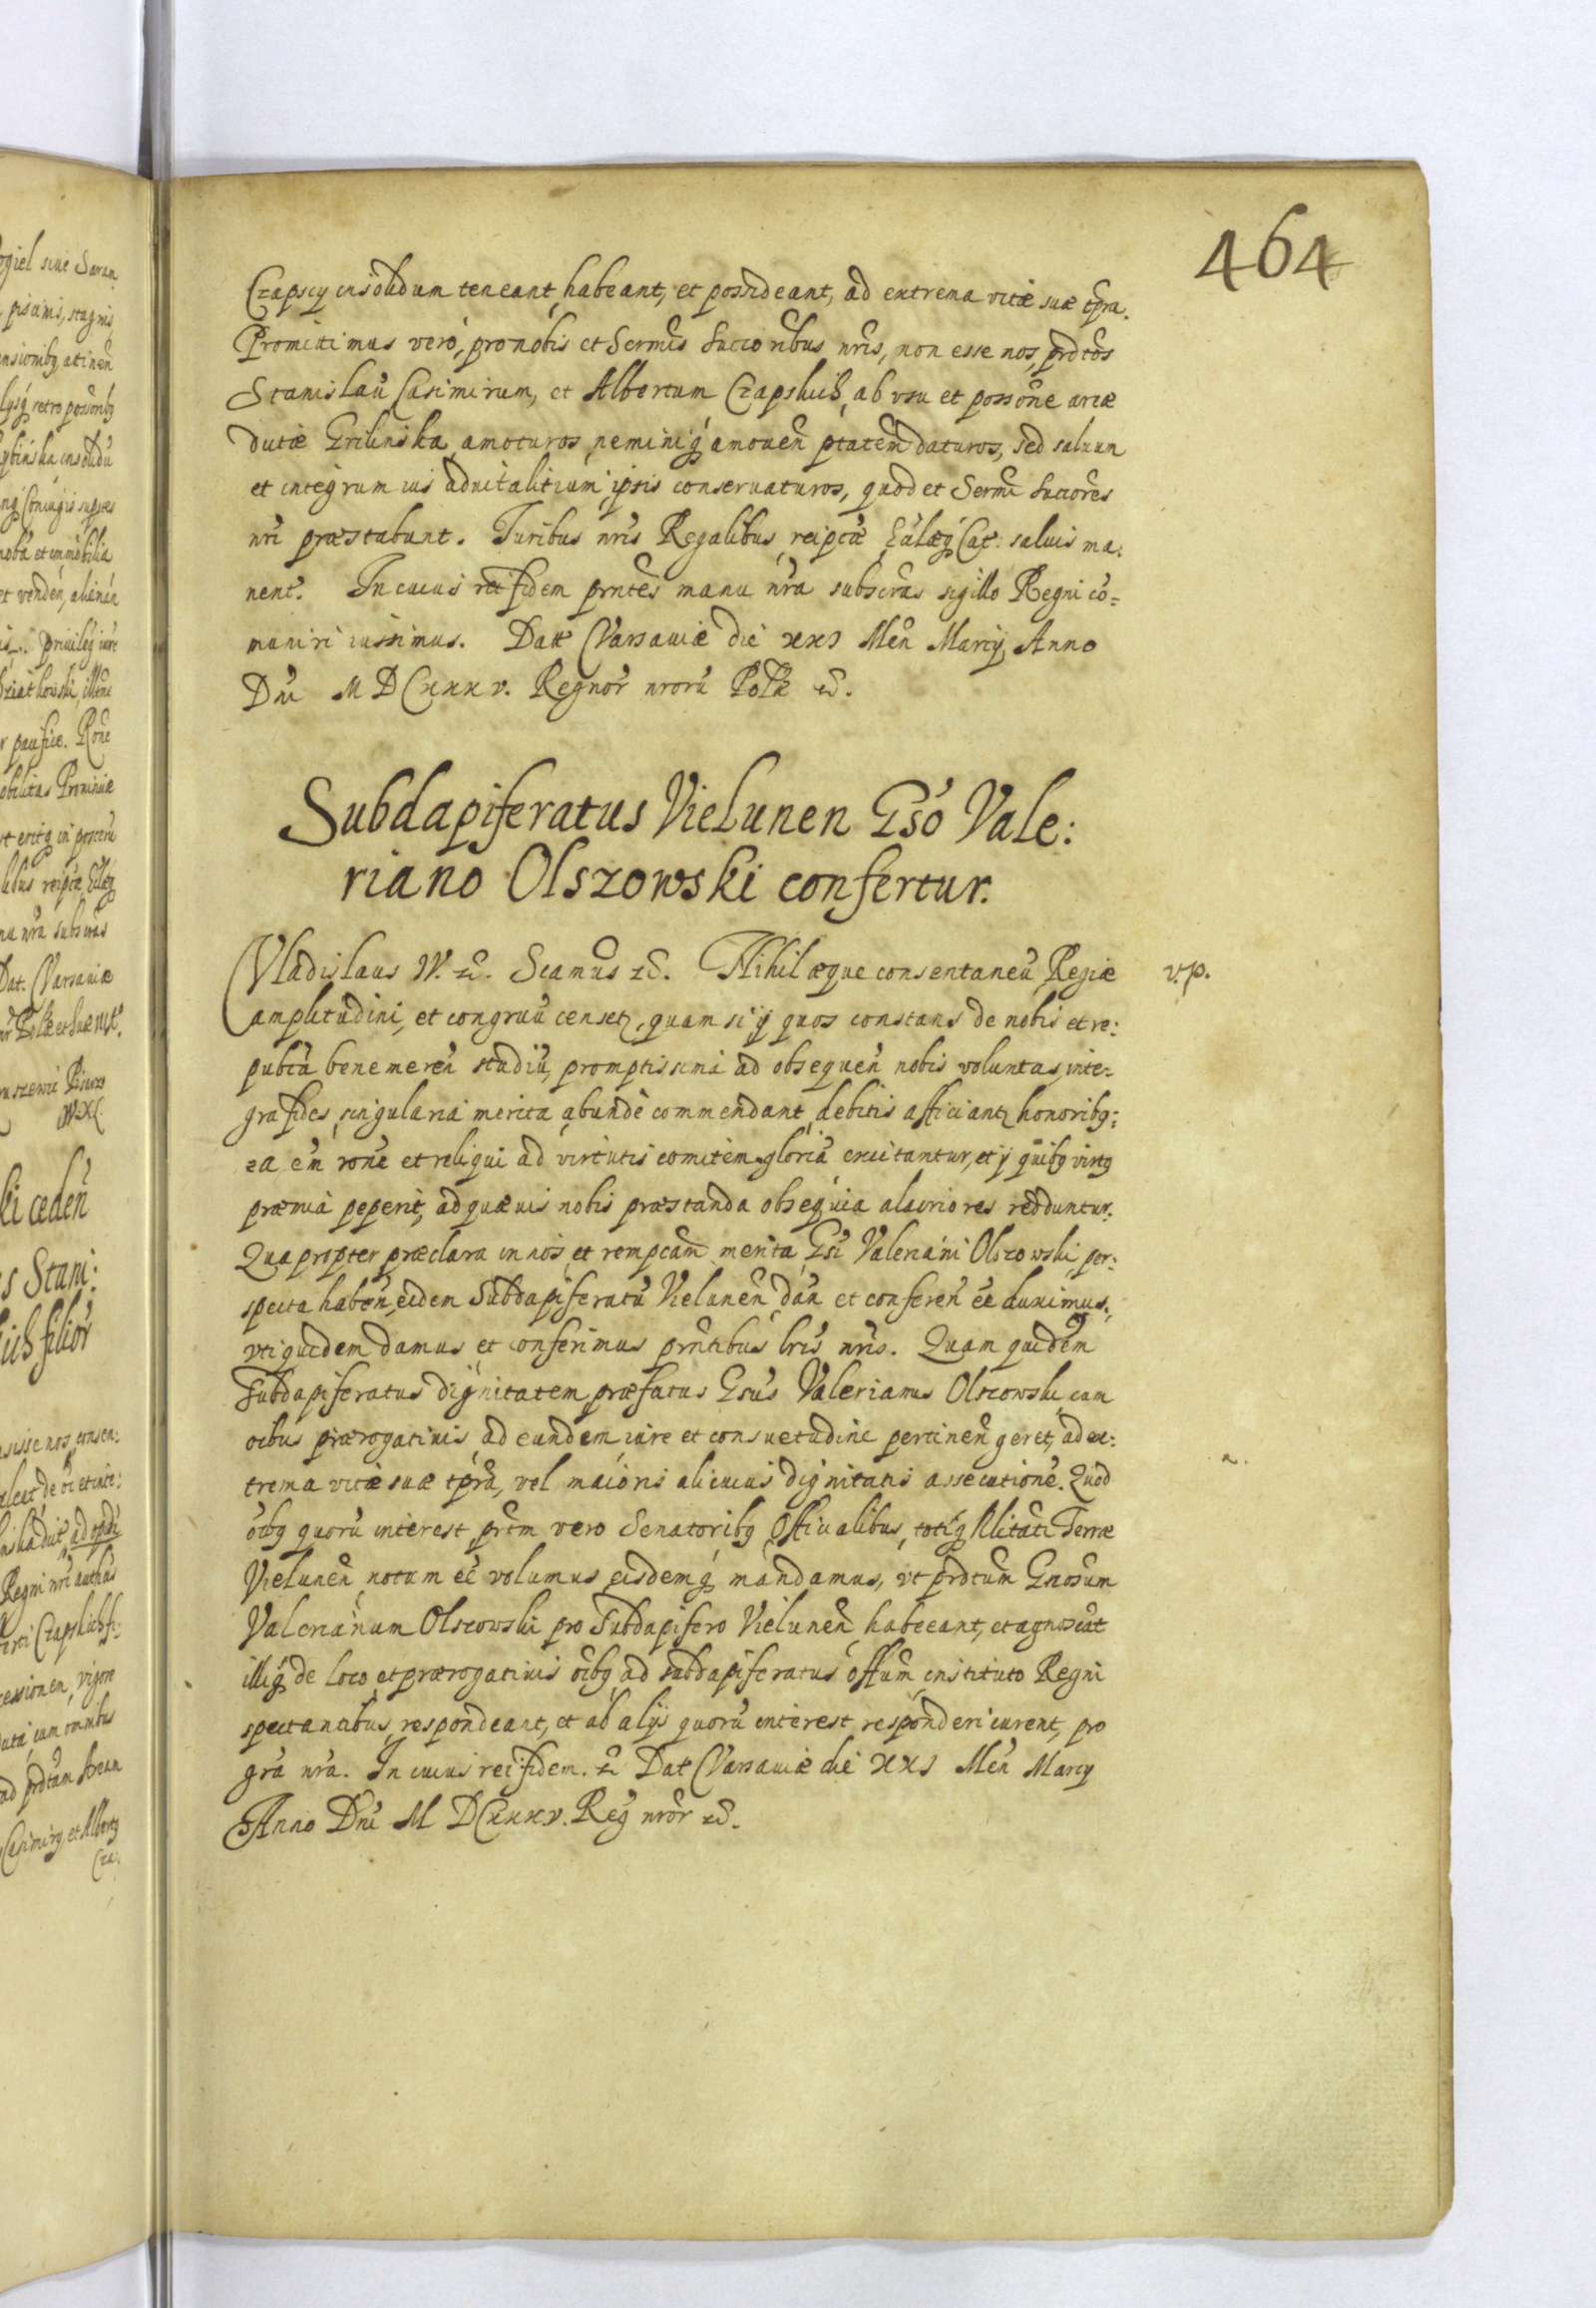 464
Czapscy insolidum teneant, habeant, et possideant, ad extrema vitæ suæ tpra.
Promittimus vero, pro nobis et Sermis Succoribus nris, non esse nos, prdtos
Stanislaũ Casimirum, et Albertum Czapskich, ab vsu et possone aræ
dictæ amoturos, neminiq́ amouen ptatem daturos, sed saluun
et integrum ius aduitalitium ipsis conseruaturos, quod et Sermi Succores
nri præstabunt. Iuribus nris Regalibus, reipcæ Cat. saluis ma:
nent. In cuius rei fidem prntes manu nra subscras sigillo Regni co=
muniri iussimus. Datt Varsauiæ die xxj Men Marcy Anno
Dni M DC xxxv. Regnor nrorũ Polæ &.
Subdapiferatus Vielunen Gso Vale:
riano Olszowski confertur.
Vladislaus IV. &. Scamus &. Nihil æque consentaneũ Regiæ
v.p.
amplitudini, et congruũ censetz, quam si ij quos constans de nobis et re:
pubca bene meren studiũ, promptissima ad obsequen nobis voluntas, inte=
gra fides, singularia merita abunde commendant, debitis afficiantz honoribq:
ea em rone et reliqui ad virtutis comitem gloriã excitantur, et ij quibq virtq
præmia peperit, ad quæuis nobis præstanda obsequia alacriores redduntur.
Quapropter præclara in nos et rempcam merita Gsi Valeriani Olszowski per:
specta haben, eidem Subdapiferatũ Vielunen dan et conferen ee duximus,
vti quidem damus et conferimus prntibus lris nris. Quam quidem
Subdapiferatus dignitatem præfatus Gsus Valerianus Olszowski, cum
oibus prærogatiuis ad eundem iure et consuetudine pertinen geret, ad ex:
trema vitæ suæ tpra, vel maioris alicuius dignitatis assecutionē. Quod
oibq quorũ interest, prtm vero Senatoribq Officialibus, totiq́ Nlitati Terræ
Vielunen notum ee volumus, eisdemq́ mandamus, vt prdtum Gnosum
Valerianum Olszowski pro Subdapifero Vielunen habeant, et agnoscãt
illiq́ de loco et prærogatiuis oibq ad subdapiferatus offum instituto Regni
spectantibus, respondeant, et ab alijs quorũ interest responderi curent, pro
gra nra. In cuius rei fidem. & Dat Varsauiæ die xxj Men Marcy
Anno Dni M DC xxxv. Reg nror &.